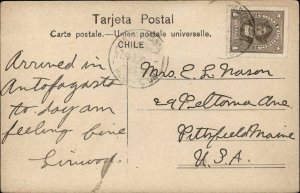 Tarjeta Postal
Carte postale.—Union postale universelle.
CHILE
Arrived in
Antofagasta
to day am
feeling fine
Linwood
Mrs. E. L. Nason
29 Peltoma Ave
Pittsfield Maine
U.S.A.